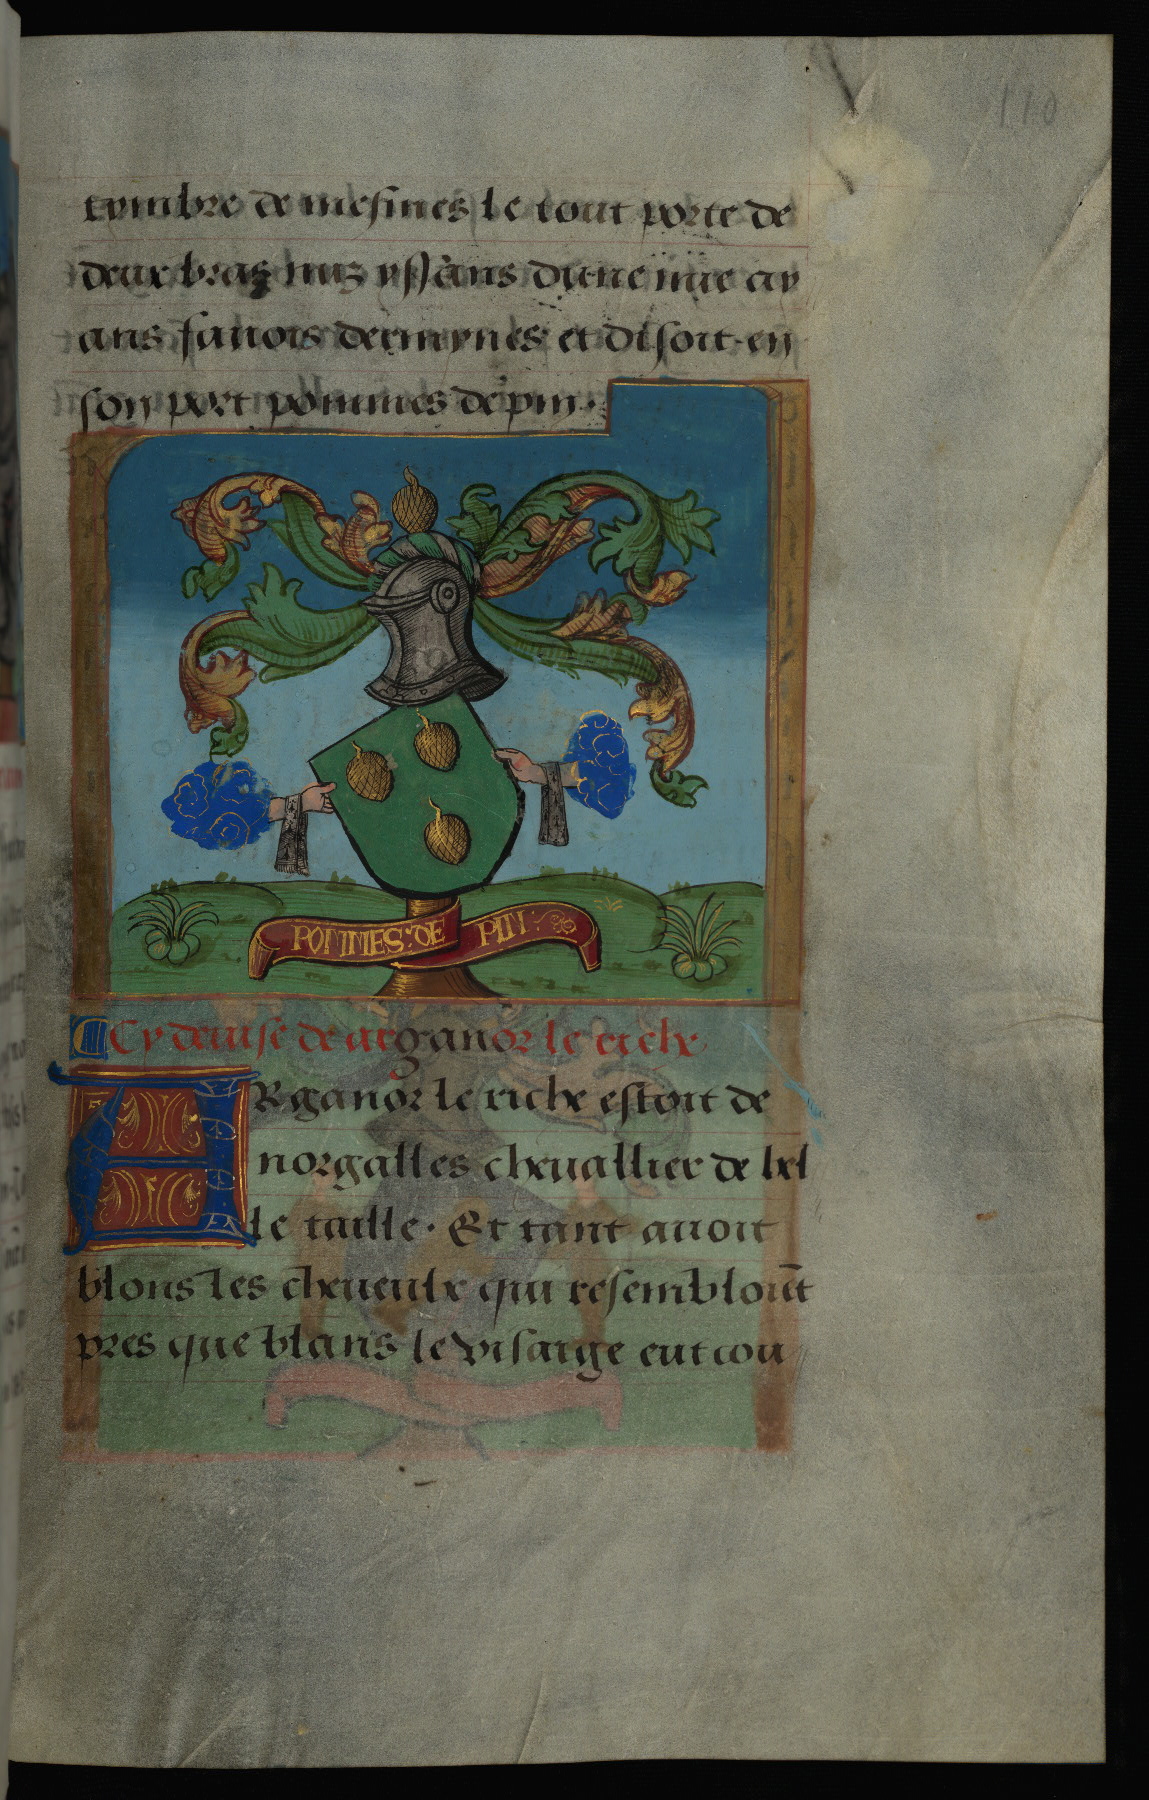 110
tymbre de mesmes le tout porte de
deux bras nuz yssans dune nue ay
ans fanois dermynes et disoit en
son port pommes de pin.
POMMES: DE PIN
Cy deuise de arganor le riche
ARganor le riche estoit de
norgalles cheuallier de bel
le taille. Et tant auoit
blons les cheueulx qui resembloiēt
pres que blans le visaige eut cou